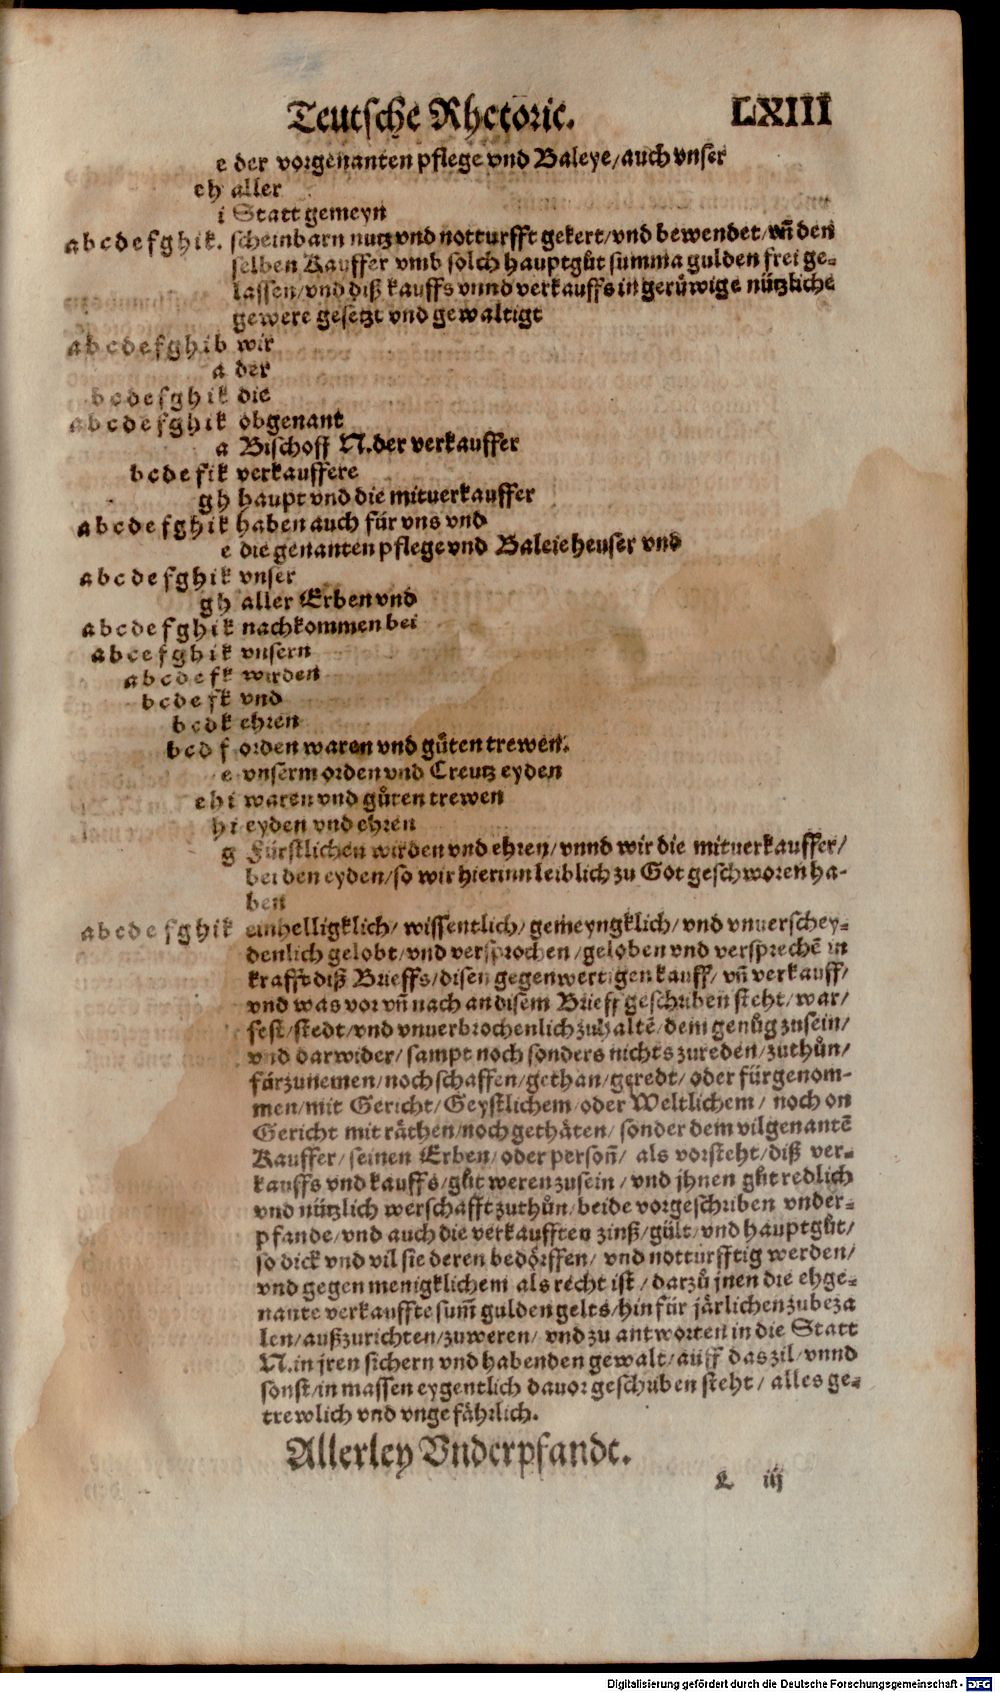 Teutsche Rhetoric. LXIII
e der vorgenanten pflege vnd Baleye/auch vnser
e h aller
i Statt gemeyn
a b c d e f g h i k. scheinbarn nutz vnd notturfft gekert/vnd bewendet/vñ den
selben Kauffer vmb solch hauptgůt summa gulden frei ge-
lassen/vnd diß kauffs vnnd verkauffs in gerůwige nützliche
gewere gesetzt vnd gewaltigt
a b c d e f g h i b wir
a der
b c d e f g h i k die
a b c d e f g h i k obgenant
a Bischoff N. der verkauffer
b c d e f i k verkauffere
g h haupt vnd die mituerkauffer
a b c d e f g h i k haben auch für vns vnd
e die genanten pflege vnd Baleie heuser vnd
a b c d e f g h i k vnser
g h aller Erben vnd
a b c d e f g h i k nachkommen bei
a b c e f g h i k vnsern
a b c d e f k wirden
b c d e f k vnd
b c d k ehren
b c d f orden waren vnd gůten trewen.
e vnserm orden vnd Creutz eyden
e h i waren vnd gůten trewen
h i eyden vnd ehren
g Fürstlichen wirden vnd ehren/vnnd wir die mituerkauffer/
bei den eyden/so wir hierinn leiblich zu Got geschworen ha-
ben
a b c d e f g h i k einhelligklich/ wissentlich/ gemeyngklich/ vnd vnuerschey-
denlich gelobt/vnd versprochen/geloben vnd versprechẽ in
krafft diß Brieffs/disen gegenwertigen kauff/ vñ verkauff/
vnd was vor vñ nach an disem Brieff geschriben steht/war/
fest/stedt/vnd vnuerbrochenlich zuhaltẽ/dem genůg zusein/
vnd darwider/ sampt noch sonders nichts zureden/zuthůn/
fürzunemen/noch schaffen/gethan/geredt/ oder fürgenom-
men/mit Gericht/Geystlichem/oder Weltlichem/ noch on
Gericht mit räthen/noch gethäten/ sonder dem vilgenantẽ
Kauffer/ seinen Erben/oder persoñ/ als vorsteht/diß ver-
kauffs vnd kauffs/gůt weren zusein/vnd jhnen gůt redlich
vnd nützlich werschafft zuthůn/beide vorgeschriben vnder-
pfande/vnd auch die verkaufften zinß/gült/vnd hauptgůt/
so dick vnd vil sie deren bedörffen/ vnd notturfftig werden/
vnd gegen menigklichem als recht ist/darzů jnen die ehge-
nante verkauffte sum̃ gulden gelts/hinfür järlichen zubeza
len/außzurichten/zuweren/ vnd zu antworten in die Statt
N. in jren sichern vnd habenden gewalt/auff das zil/vnnd
sonst/in massen eygentlich dauor geschriben steht/ alles ge-
trewlich vnd vngefährlich.
Allerley Vnderpfandt.
L iij
Digitalisierung gefördert durch die Deutsche Forschungsgemeinschaft - DFG